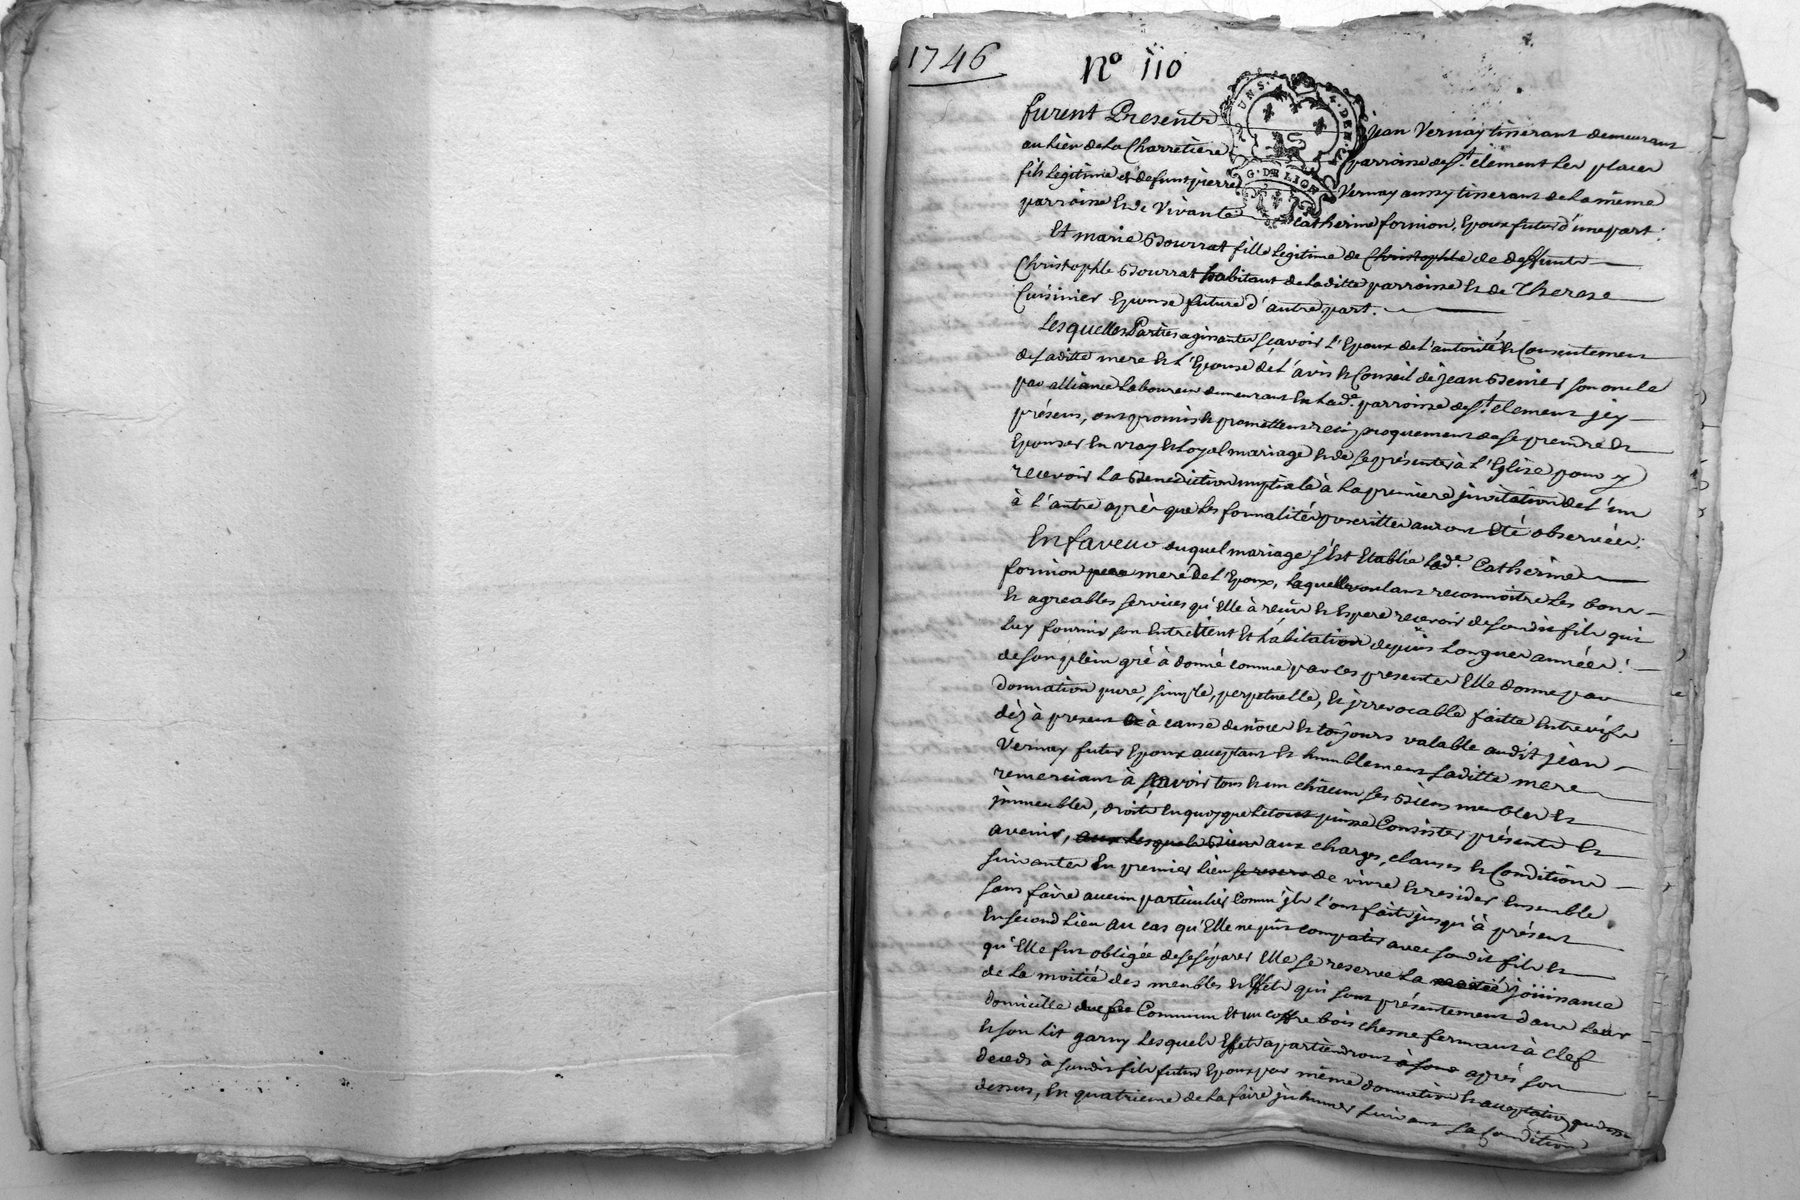 1746
nº 110
UNS. 4. DEN.
G. DE LION
furent Presents jean Vernay tisserant demeurant
au lieu de La Charretiere parroisse de St. clement Les places
fils legitime et defunt pierre Vernay aussy tisserant de la même
parroisse et de Vivante Catherine fornion, Epoux futur d'une part.
Et marie Bourrat fille legitime de Christophle de deffunt
Christophle Bourrat habitant de laditte parroisse et de Therese
Cuisinier Epouse future d'autre part.
Lesquelles Parties agissantes sçavoir L'Epoux de l'autorité et Consentement
de saditte mere et L'Epouse de L'avis et Conseil de jean Benier son oncle
par alliance Laboureur demeurant en lade. parroisse de St. clement jcy
présens, ont promis et promettent reciproquement de se prendre et
Epouser en vray et Loyal mariage et de se présenter à L'Eglise pour y
recevoir La Benediction nuptiale à La premiere jnvitation de L'un
à l'autre après que les formalités prescrittes auront Eté observées.
En faveur duquel mariage s'Est Etablie lade. Catherine
fornion mere de L'Epoux, Laquelle voulant reconnoitre Les bons
et agreables services qu'Elle à reçus et Espere recevoir de sondit fils qui
luy fournis son Entretient et habitation depuis Longues années
de son plein gré à donné comme par les presentes Elle donne par
donnation pure, simple, perpetuelle, et jrrevocable faitte Entre vifs
dèz à present à cause de nôces et toûjours valable audit jean
Vernay futur Epoux acceptant et humblement saditte mere
remerciant à sçavoir tous et un châcun ses Biens meubles et
jmmeubles, droits En quoy que le tout puisse Consister présents et
avenir, aux Lesquels Biens aux charges, clauses et Conditions
suivantes En premier lieu se reserv de vivre et resider Ensemble
sans faire aucun particulier Comm' jls l'ont fait jusqu'à présent
En second Lieu au cas qu'Elle ne pût compatir avec sondit fils et
qu'Elle fut obligée de se séparer Elle se reserve La moitié joüissance
de La moitié des meubles et Effets qui sont présentement dans Leur
domicille Commun Et un coffre bois chesne fermant à clef
et son Lit garny Lesquels Effets apartiendront à son après son
deceds à sondit fils futur Epoux par même donnation et acceptation que
dessus, En quatrieme de La faire jnhumer suivant sa Condition